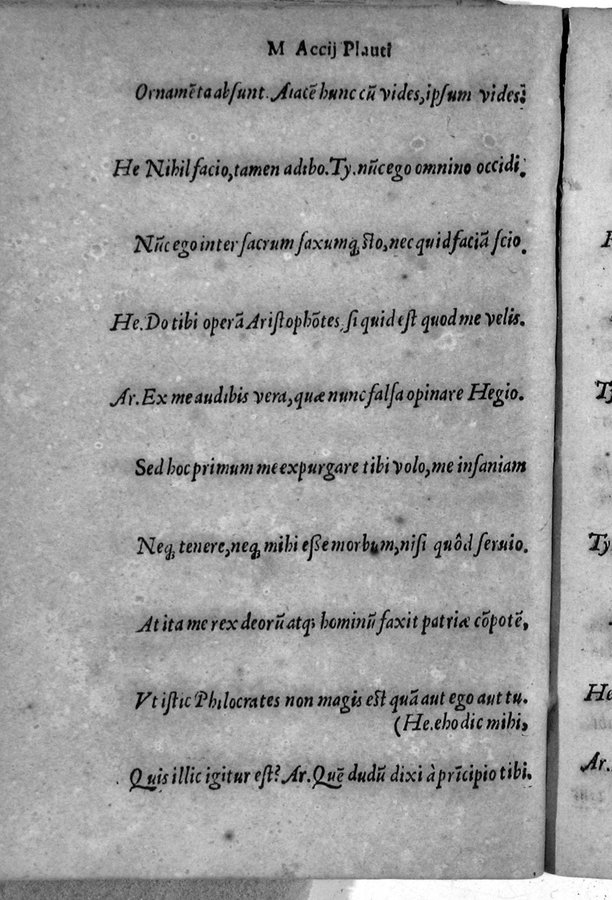 M Accij Plauti
Ornamēta absunt. Aiacē hunc cū vides, ipsum vides.
He Nihil facio, tamen adibo. Ty. nūc ego omnino occidi.
Nūc ego inter sacrum saxumq; sto, nec quid faciā scio.
He. Do tibi operā Aristophōtes, si quid est quod me velis.
Ar. Ex me audibis vera, quæ nunc falsa opinare Hegio.
Sed hoc primum me expurgare tibi volo, me insaniam
Neq; tenere, neq; mihi esse morbum, nisi quôd seruio.
At ita me rex deorū atq; hominū faxit patriæ cōpotē,
Vt istic Philocrates non magis est quā aut ego aut tu.
(He. eho dic mihi,
Quis illic igitur est? Ar. Quē dudū dixi à prīcipio tibi.
Ty
He
Ar.